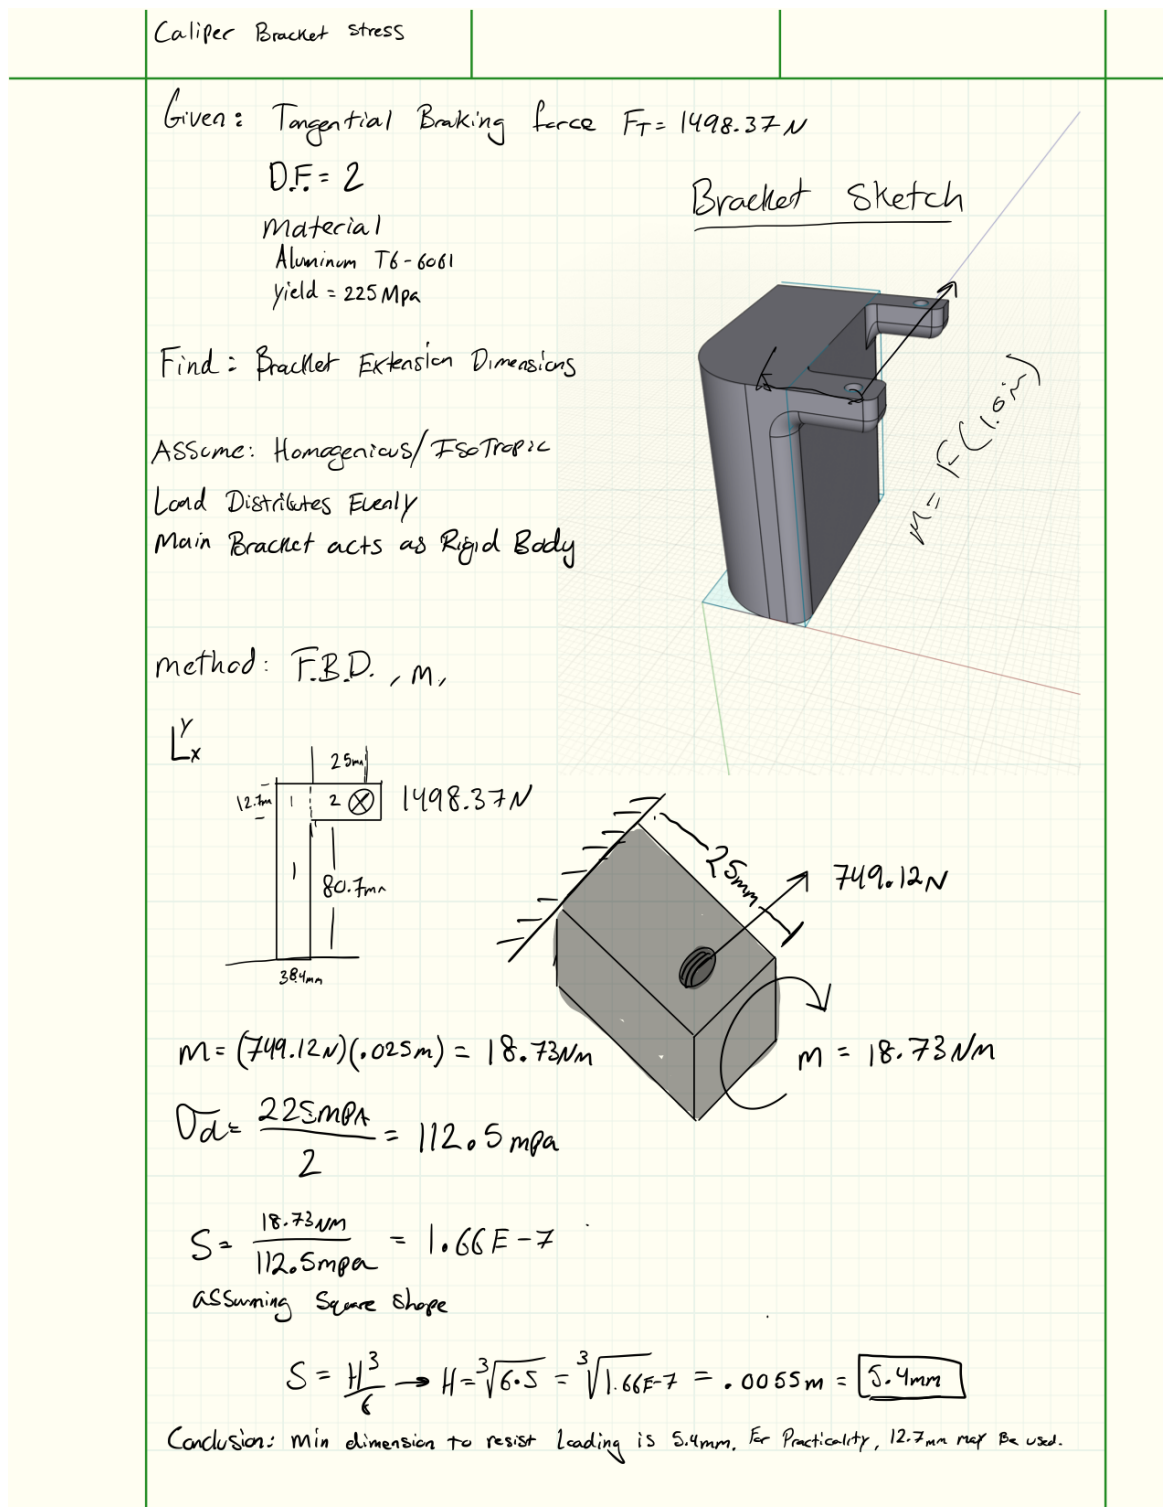 Caliper Bracket Stress
Given: Tangential Braking force F_T = 1498.37 N
D.F. = 2
Material
Aluminum T6-6061
Yield = 225 Mpa
Bracket Sketch
Find: Bracket Extension Dimensions
M = F(1.0in)
Assume: Homogenious/Isotropic
Load Distributes Evenly
Main Bracket acts as Rigid Body
Method: F.B.D., M,
Y
X
25mm
12.7m
1
2
1498.37N
1
80.7mm
38.4mm
25mm
749.12N
M = (749.12N)(.025m) = 18.73Nm
M = 18.73 Nm
σd = 225MPA / 2 = 112.5 mpa
S = 18.73NM / 112.5mpa = 1.66E-7
assuming square shape
S = H³/6 → H = ³√6·S = ³√1.66E-7 = .0055m = 5.4mm
Conclusion: Min dimension to resist Loading is 5.4mm. For Practicality, 12.7mm may Be used.